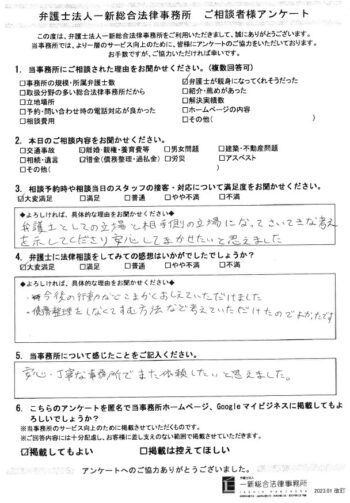 弁護士法人一新総合法律事務所 ご相談者様アンケート
この度は、弁護士法人一新総合法律事務所をご利用いただきまして、誠にありがとうございます。
当事務所では、より一層のサービス向上のために、皆様にアンケートのご協力をいただいております。
お手数ですが、ご協力いただければ幸いです。
1. 当事務所にご相談された理由をお聞かせください。（複数回答可）
□事務所の規模・所属弁護士数 ☑弁護士が親身になってくれそうだった
□取扱分野の多い総合法律事務所だから □紹介・薦めがあった
□立地場所 □解決実績数
□予約・問い合わせ時の電話対応が良かった □ホームページの内容
□相談費用 □その他( )
2. 本日のご相談内容をお聞かせください。
□交通事故 ☑離婚・親権・養育費等 □男女問題 □建築・不動産問題
□相続・遺言 ☑借金(債務整理・過払金) □労災 □アスベスト
□その他( )
3. 相談予約時や相談当日のスタッフの接客・対応について満足度をお聞かせください。
☑大変満足 □満足 □普通 □やや不満 □不満
◆よろしければ、具体的な理由をお聞かせください◆
弁護士としての立場と相手側の立場になっててきかくな考え
を示してくださり安心してまかせたいと思えました
4. 弁護士に法律相談をしてみての感想はいかがでしたでしょうか？
☑大変満足 □満足 □普通 □やや不満 □不満
◆よろしければ、具体的な理由をお聞かせください◆
・今後の行動などこまかくおしえていただけました
・債務整理をしなくてすむ方法など考えていただけたのでよかったです
5. 当事務所について感じたことをご記入ください。
安心・丁寧な事務所でまた依頼したいと思えました。
6. こちらのアンケートを匿名で当事務所ホームページ、Googleマイビジネスに掲載してもよ
ろしいでしょうか？
※当事務所のサービス向上のために掲載させていただくものです。
※ご回答内容には十分配慮し、お客様に差し支えのない範囲で掲載させていただきます。
☑掲載してもよい □掲載は控えてほしい
アンケートへのご協力ありがとうございました。
弁護士法人
一新総合法律事務所
2023.01 改訂